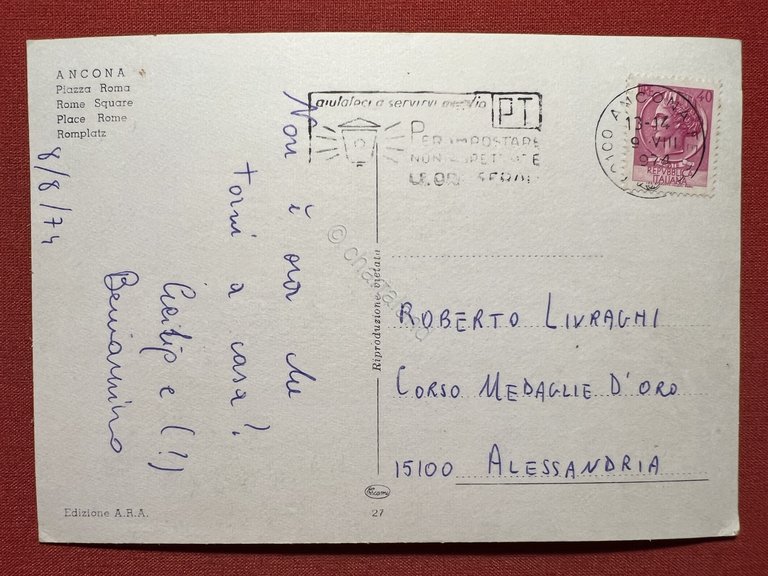 ANCONA
Piazza Roma
Rome Square
Place Rome
Romplatz
8/8/74
Non è ora che
torni a casa?
e (!)
Beniamino
Edizione A.R.A.
Riproduzione vietata
27
aiutateci a servirvi meglio
PT
PER IMPOSTARE
NON ASPETTATE
LE ORE SERALI
ANCONA
13-14
9 VIII
974
40
REPUBBLICA
ITALIANA
ROBERTO LIVRAGHI
CORSO MEDAGLIE D'ORO
15100 ALESSANDRIA